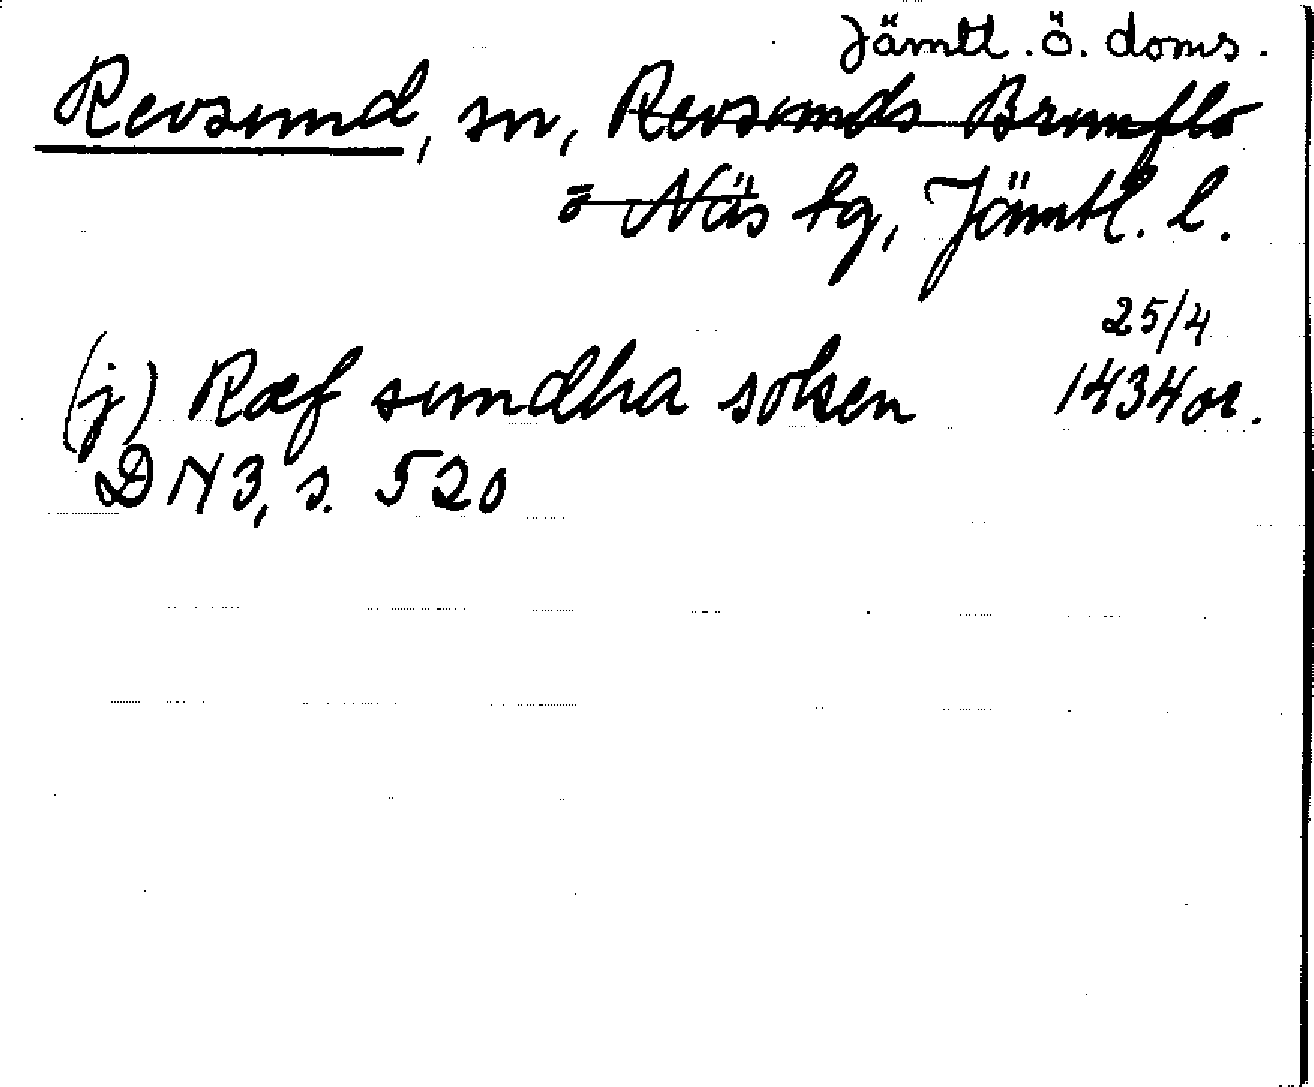 Jämtl. ö. doms.
Revsund, sn, Revsunds Brunflo
o Näs tg, Jämtl. l.
25/4
(j) Ræf sundha soken 1434 or.
DN 3, s. 520